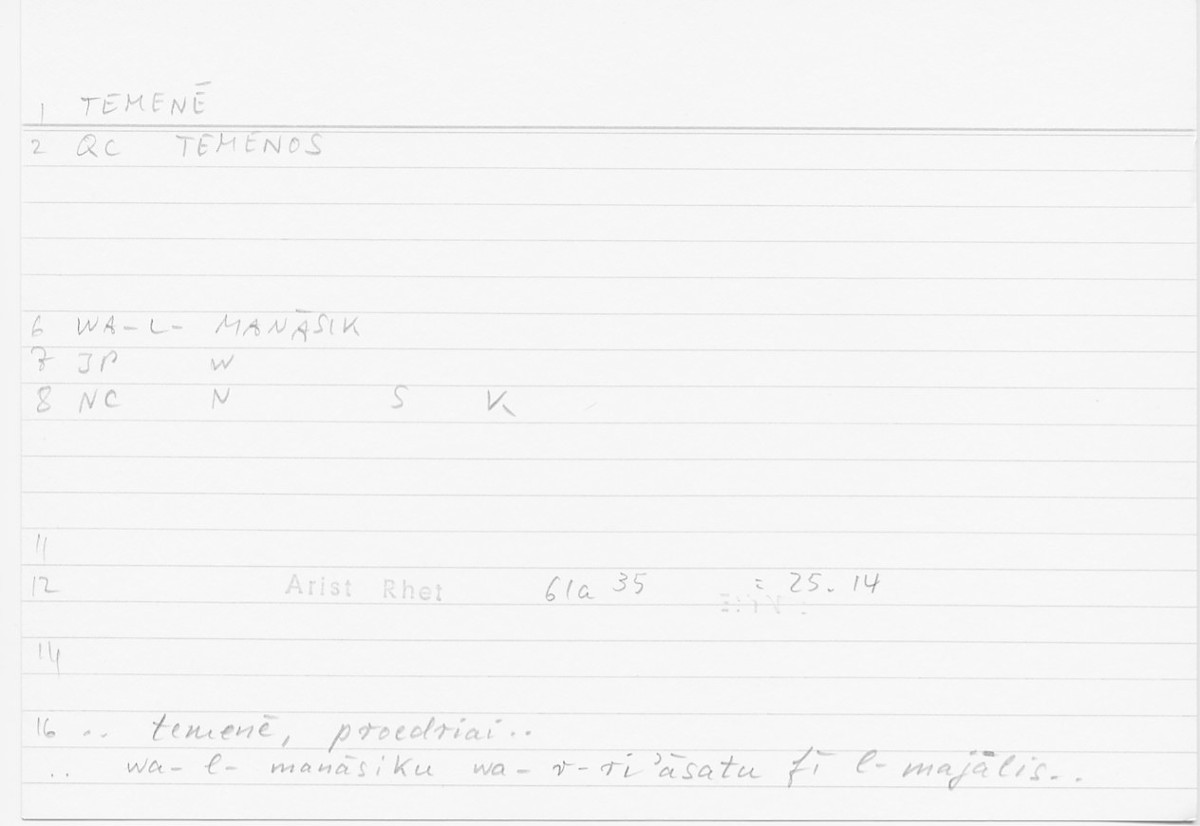 1 TEMENĒ
2 QC TEMENOS
6 WA-L- MANĀSIK
7 JP W
8 NC N S K
11
12 Arist Rhet 61a 35 = 25. 14
14
16 .. temenē, proedriai..
.. wa-l- manāsiku wa-r-ri'āsatu fī l-majālis..